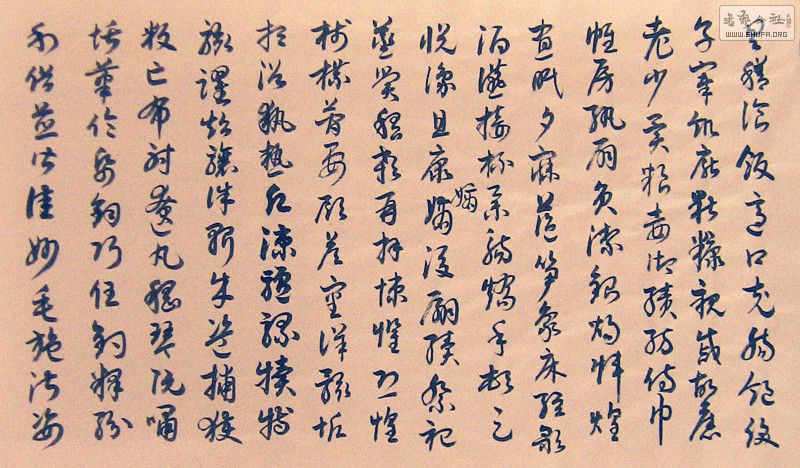 具膳飡飯適口充腸飽飫
烹宰飢厭糟糠親戚故舊
老少異糧妾御績紡侍巾
帷房紈扇員潔銀燭煒煌
晝眠夕寐藍笋象床弦歌
酒讌接杯舉觴矯手頓足
悅豫且康嫡後嗣續祭祀
嫡
蒸嘗稽顙再拜悚懼恐惶
牋牒簡要顧答審詳骸垢
想浴執熱願涼驢騾犢特
駭躍超驤誅斬賊盜捕獲
叛亡布射遼丸嵇琴阮嘯
恬筆倫紙鈞巧任釣釋紛
利俗並皆佳妙毛施淑姿
書藝公社
WWW.SHUFA.ORG